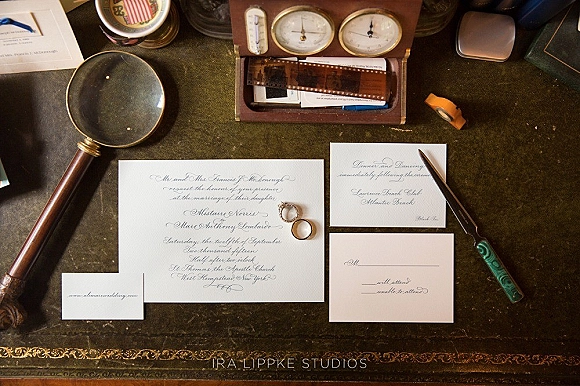 Mr. and Mrs. Francis J. McDonough
request the honour of your presence
at the marriage of their daughter
to
Marc Anthony
Saturday, the twelfth of September
Two thousand fifteen
Half after two o'clock
St. Thomas the Apostle Church
West Hempstead, New York
Dinner and Dancing
immediately following the
Lawrence Beach Club
Atlantic Beach
Black Tie
M
will attend
unable to attend
IRA LIPPKE STUDIOS